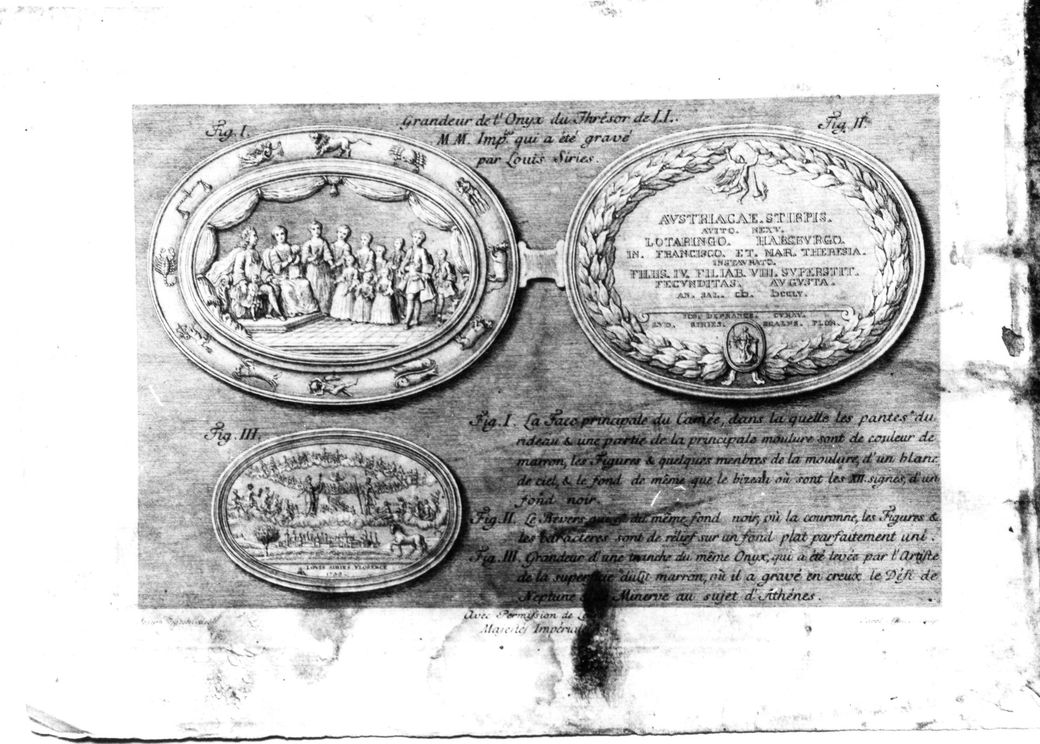 Fig. I.
Grandeur de l'Onyx du Thrésor de LL.
M M. Imp.les qui a été gravé
par Louis Siries.
Fig. II
AVSTRIACAE. STIRPIS.
AVITO. NEXV.
LOTARINGO. HABSBVRGO.
IN. FRANCISCO. ET. MAR. THERESIA.
INSTAVRATO.
FILIIS. IV. FILIAB. VIII. SVPERSTIT.
FECVNDITAS. AVGVSTA.
AN. SAL.
IOS. DEFRANCE. CVRAV.
LVD. SIRIES. SCALPS. FLOR.
Fig. III.
LOVIS SIRIES FLORENCE
Fig. I. La Face principale du Camée, dans la quelle les pantes du
rideau & une partie de la principale moulure sont de couleur de
marron, les Figures & quelques menbres de la moulure, d'un blanc
de ciel, & le fond de même que le bizeau où sont les XII. signes, d'un
fond noir.
Fig. II. Le Revers du même fond noir, où la couronne, les Figures &
les caracteres sont de relief sur un fond plat parfaitement uni.
Fig. III. Grandeur d'une tranche du même Onyx, qui a été levée par l'Artiste
de la superficie dudit marron, où il a gravé en creux le Défi de
Neptune Minerve au sujet d'Athénes.
Avec Permission de
Majestés Impériales